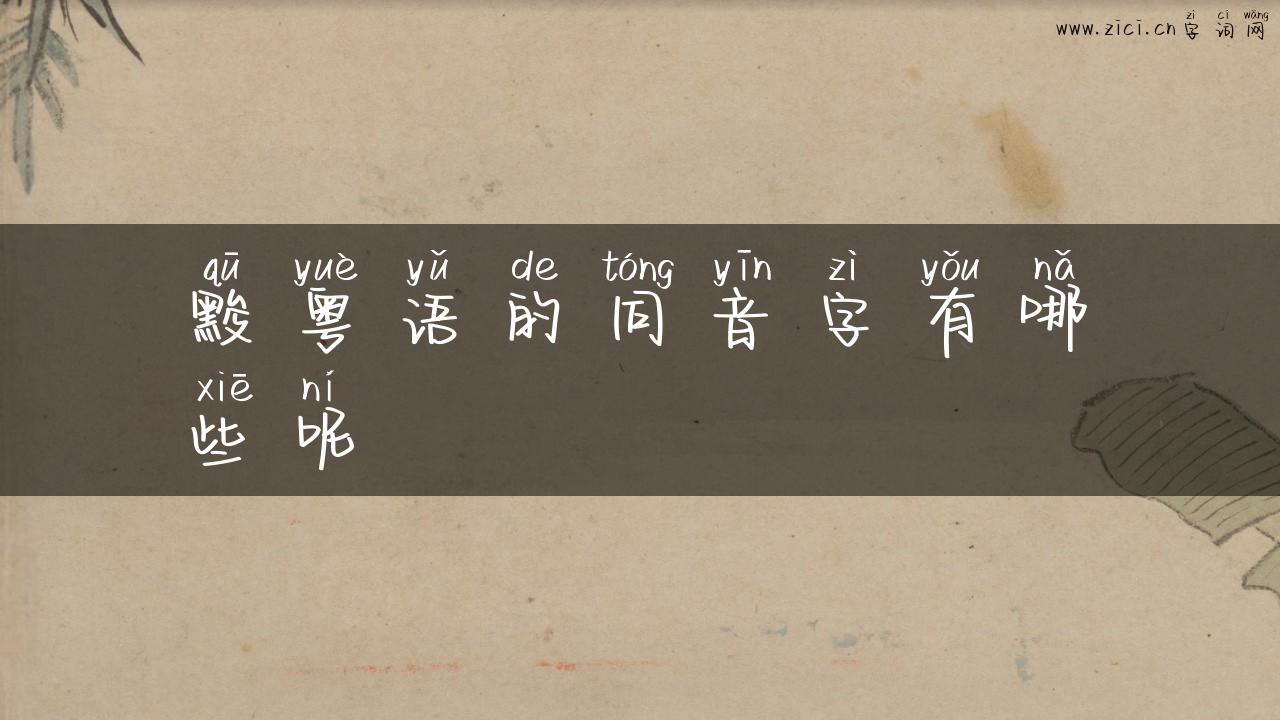 zì cí wǎng
www.zici.cn 字词网
qū yuè yǔ de tóng yīn zì yǒu nǎ
黢粤语的同音字有哪
xiē ní
些呢